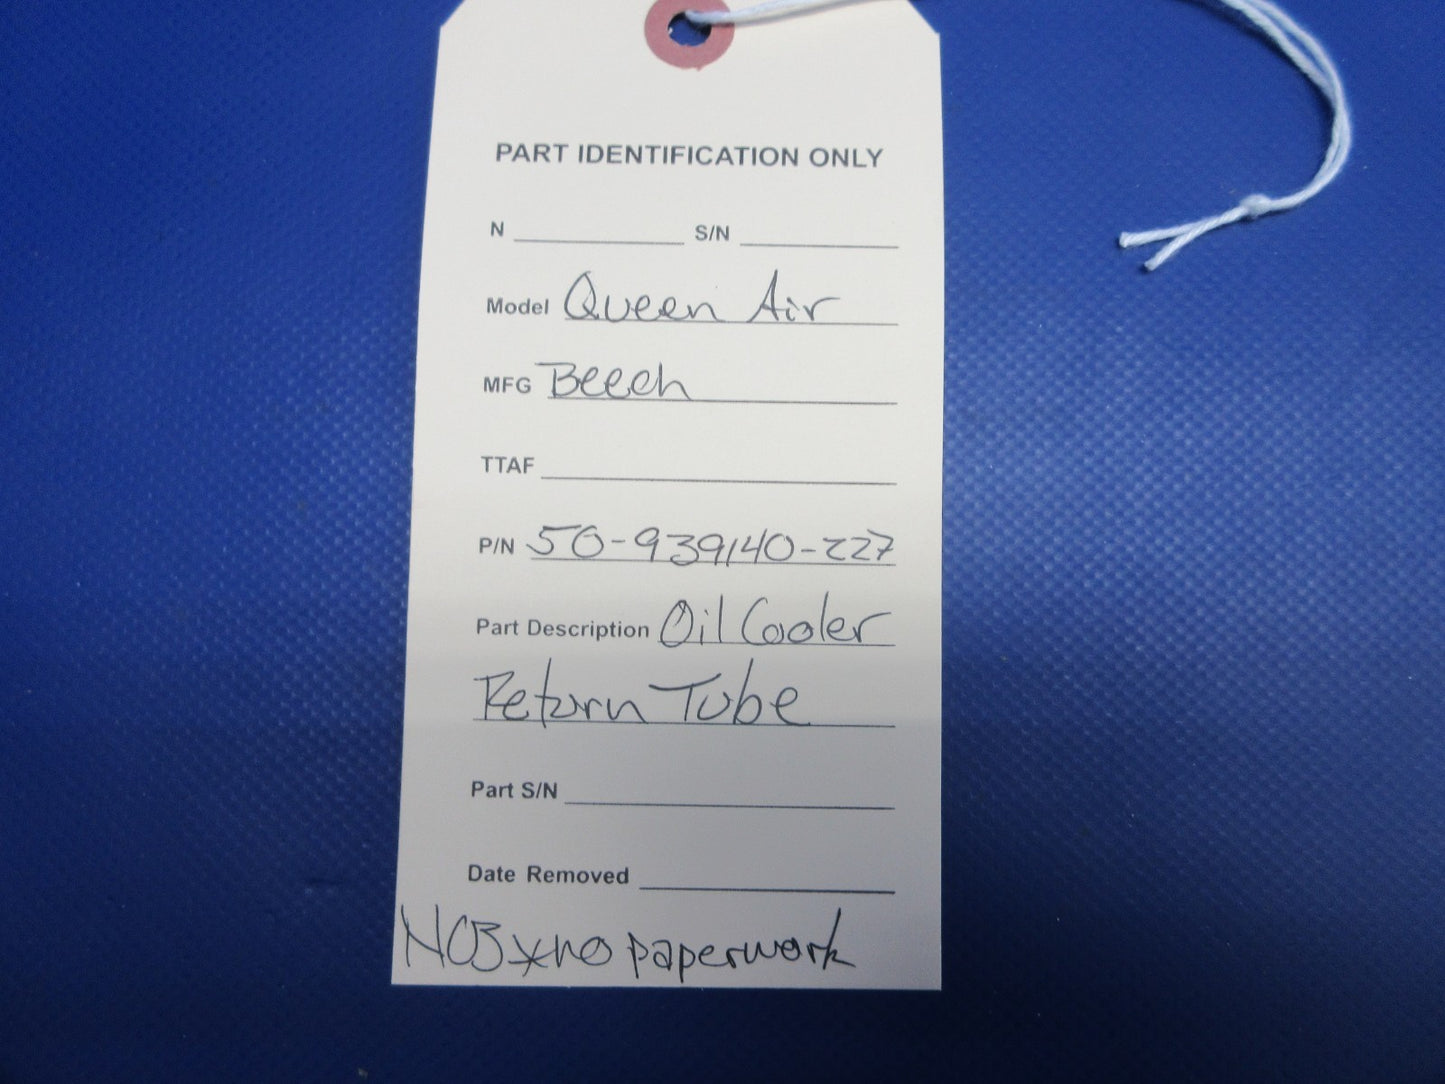 PART IDENTIFICATION ONLY
N S/N
Model Queen Air
MFG Beech
TTAF
P/N 50-939140-227
Part Description Oil Cooler
Return Tube
Part S/N
Date Removed
NOB * no paperwork